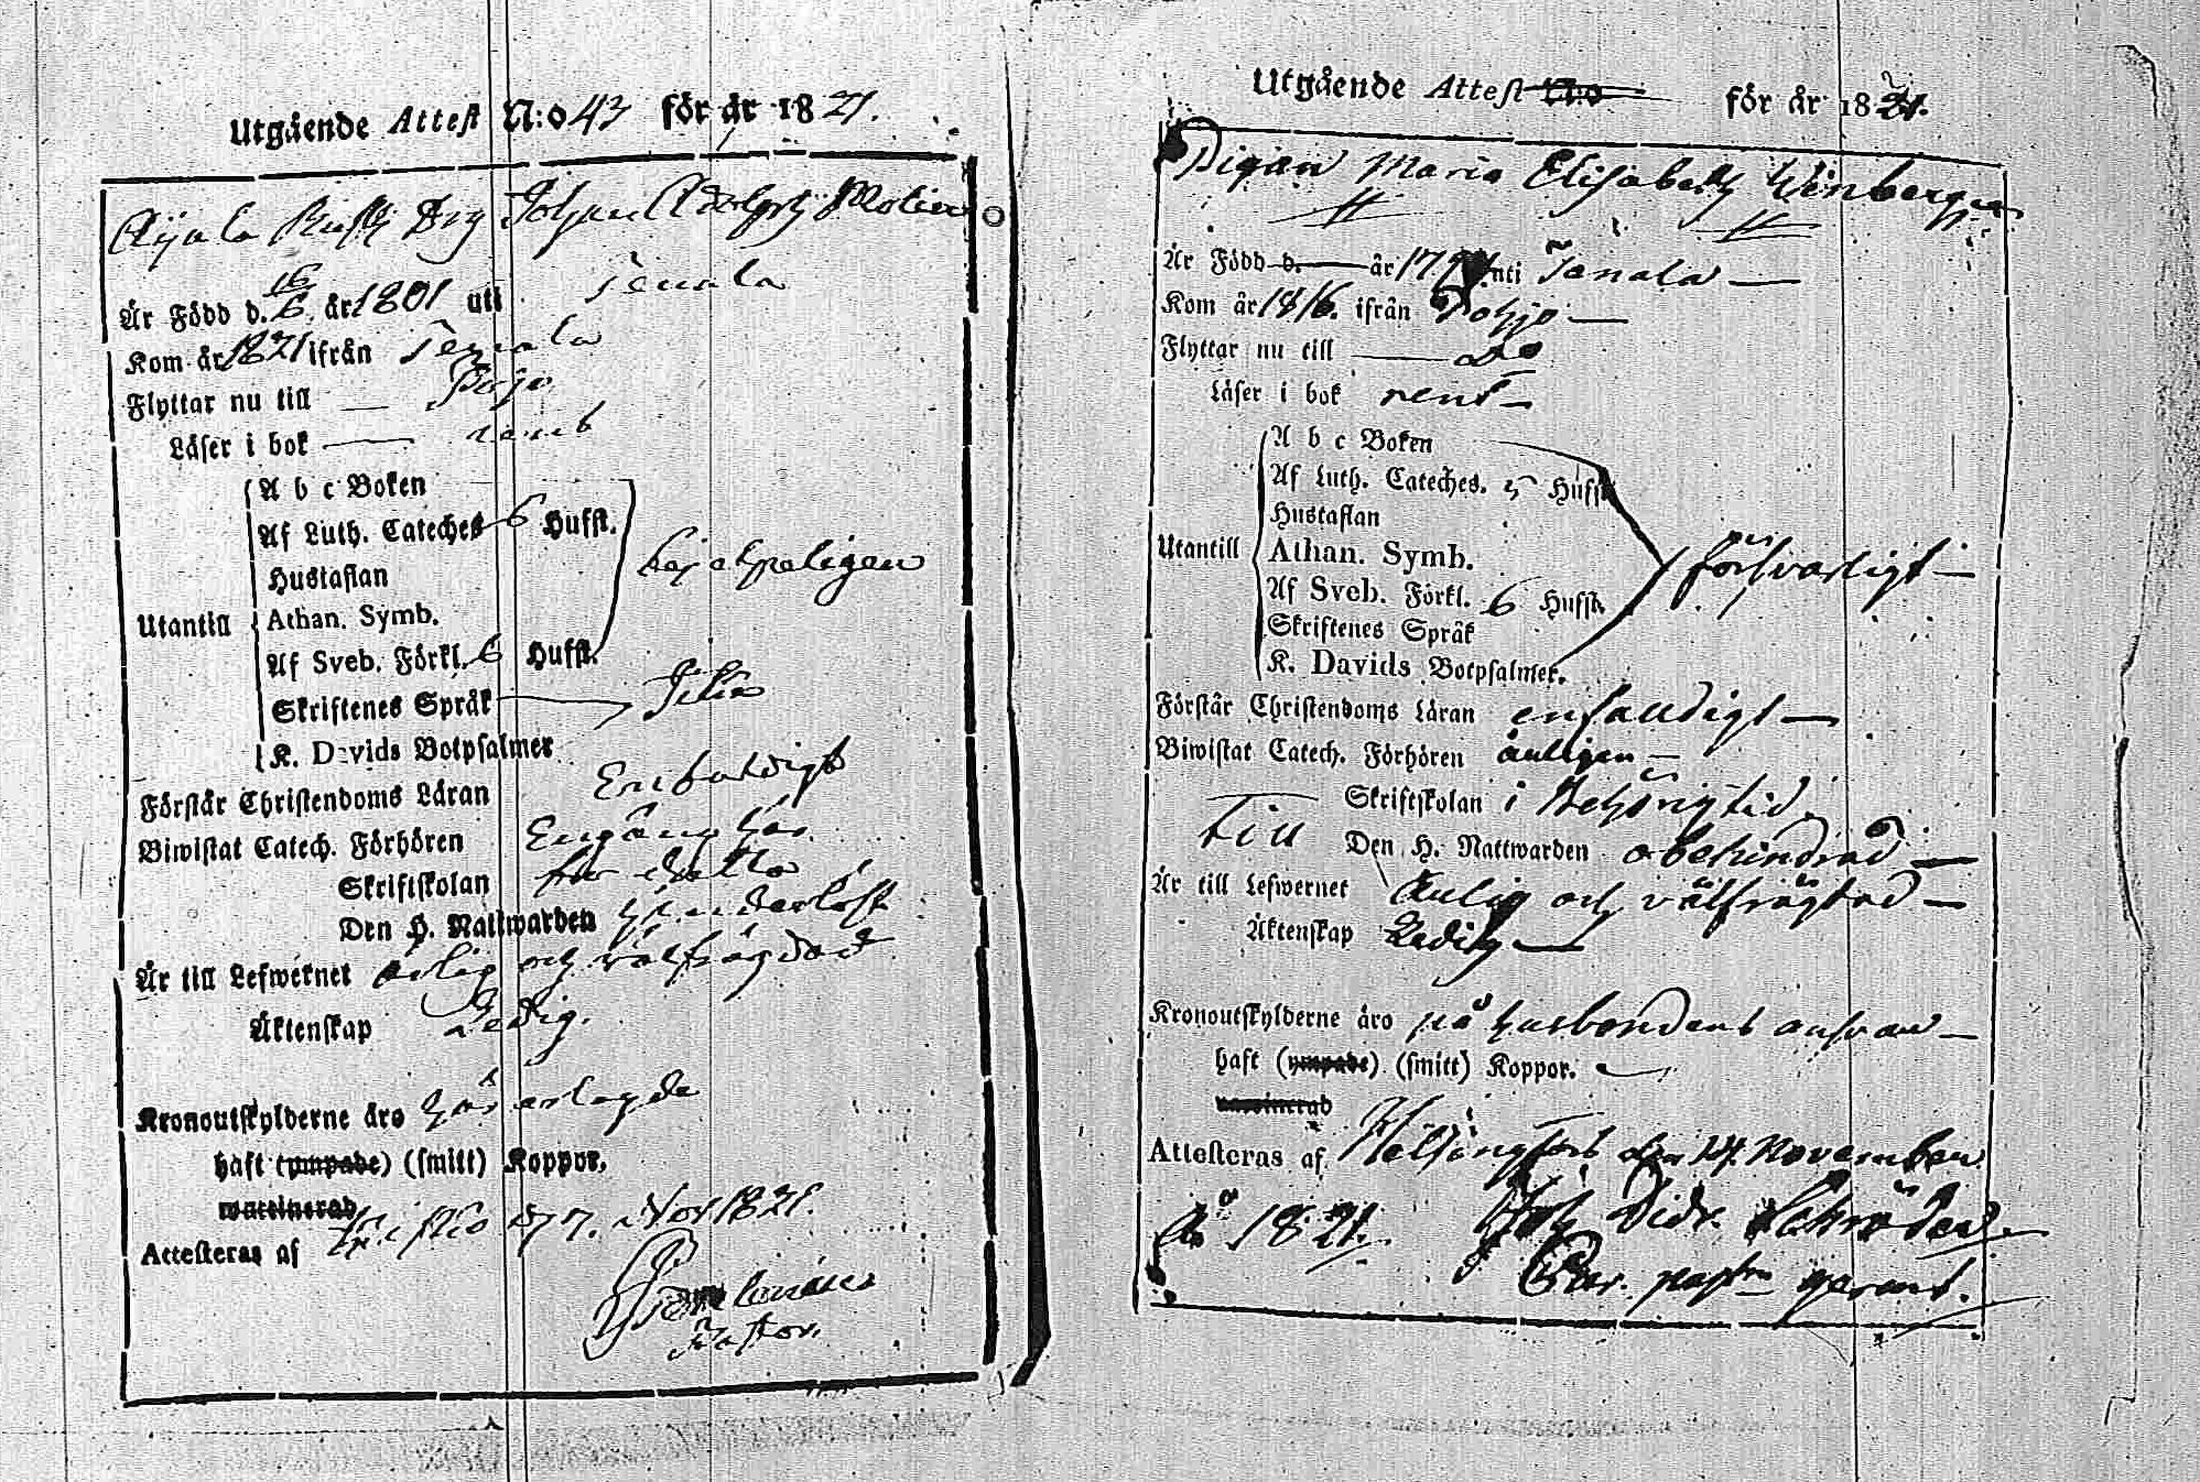 Utgående Attest N:o 43 för år 1821.
Johan Adolph Molin
Är Född d. 16 år 1801 uti Tenala
Kom år 1821 ifrån Tenala
Flyttar nu till Pojo
Läser i bok
A b c Boken
Af Luth. Cateches 6 Hufst.
Hustaflan
Utantill
Athan. Symb.
Af Sveb. Förkl. 6 Hufst.
Skriftenes Språk
K. Davids Botpsalmer
Förstår Christendoms Läran Enfaldigt
Biwistat Catech. Förhören Engång här
Skriftskolan för detta
Den H. Nattwarden hinderlöst
Är till Lefwernet ärlig och välfrägdad
Äktenskap Ledig.
Kronoutskylderne äro här erlagde
haft (ympade) (smitt) Koppor.
waccinerad
Attesteras af d 7. Nov 1821.
Pastor.
Utgående Attest N:o för år 1821.
Pigan Maria Elisabeth Winberg
Är Född d. år uti Tenala
Kom år 1816. ifrån Pohjo
Flyttar nu till do
Läser i bok rent
A b c Boken
Af Luth. Cateches. 5 Hufst.
Hustaflan
Utantill
Athan. Symb.
försvarligt
Af Sveb. Förkl. 6 Hufst.
Skriftenes Språk
K. Davids Botpsalmer.
Förstår Christendoms Läran enfaldigt
Biwistat Catech. Förhören årligen
Skriftskolan i behörig tid
Till Den H. Nattwarden obehindrad
Är till Lefwernet ärlig och välfrägdad
Äktenskap Ledig
Kronoutskylderne äro på husbondens ansvar
haft (ympade) (smitt) Koppor.
waccinerad
Attesteras af Helsingfors den 14 November
År 1821. Joh Didr. Schröder